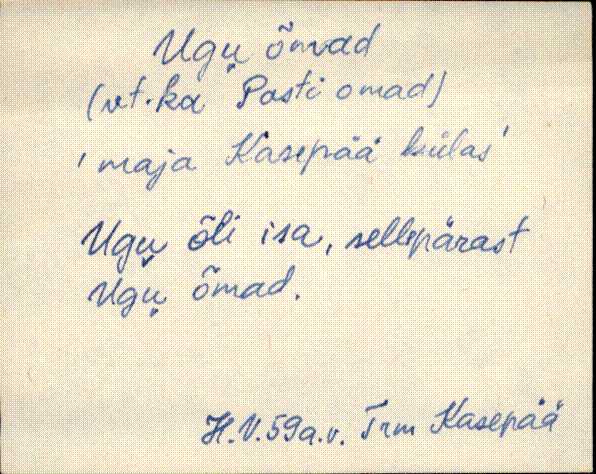 Ugu̬ õmad
(vt. ka Posti omad)
'maja Kasepää külas'
Ugu̬ õli isa, sellepärast
Ugu̬ õmad.
H.V. 59 a.v. Trm Kasepää